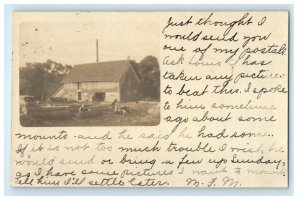 Just thought I
would send you
one of my postals.
Ask Louis if has
taken any pictures
to beat this. I spoke
to him sometime
ago about some
mounts and he said he had some.
If it is not too much trouble I wish he
would send or bring a few up Sunday,
as I have some pictures I want to mount.
tell him I'll settle later. M. F. M.